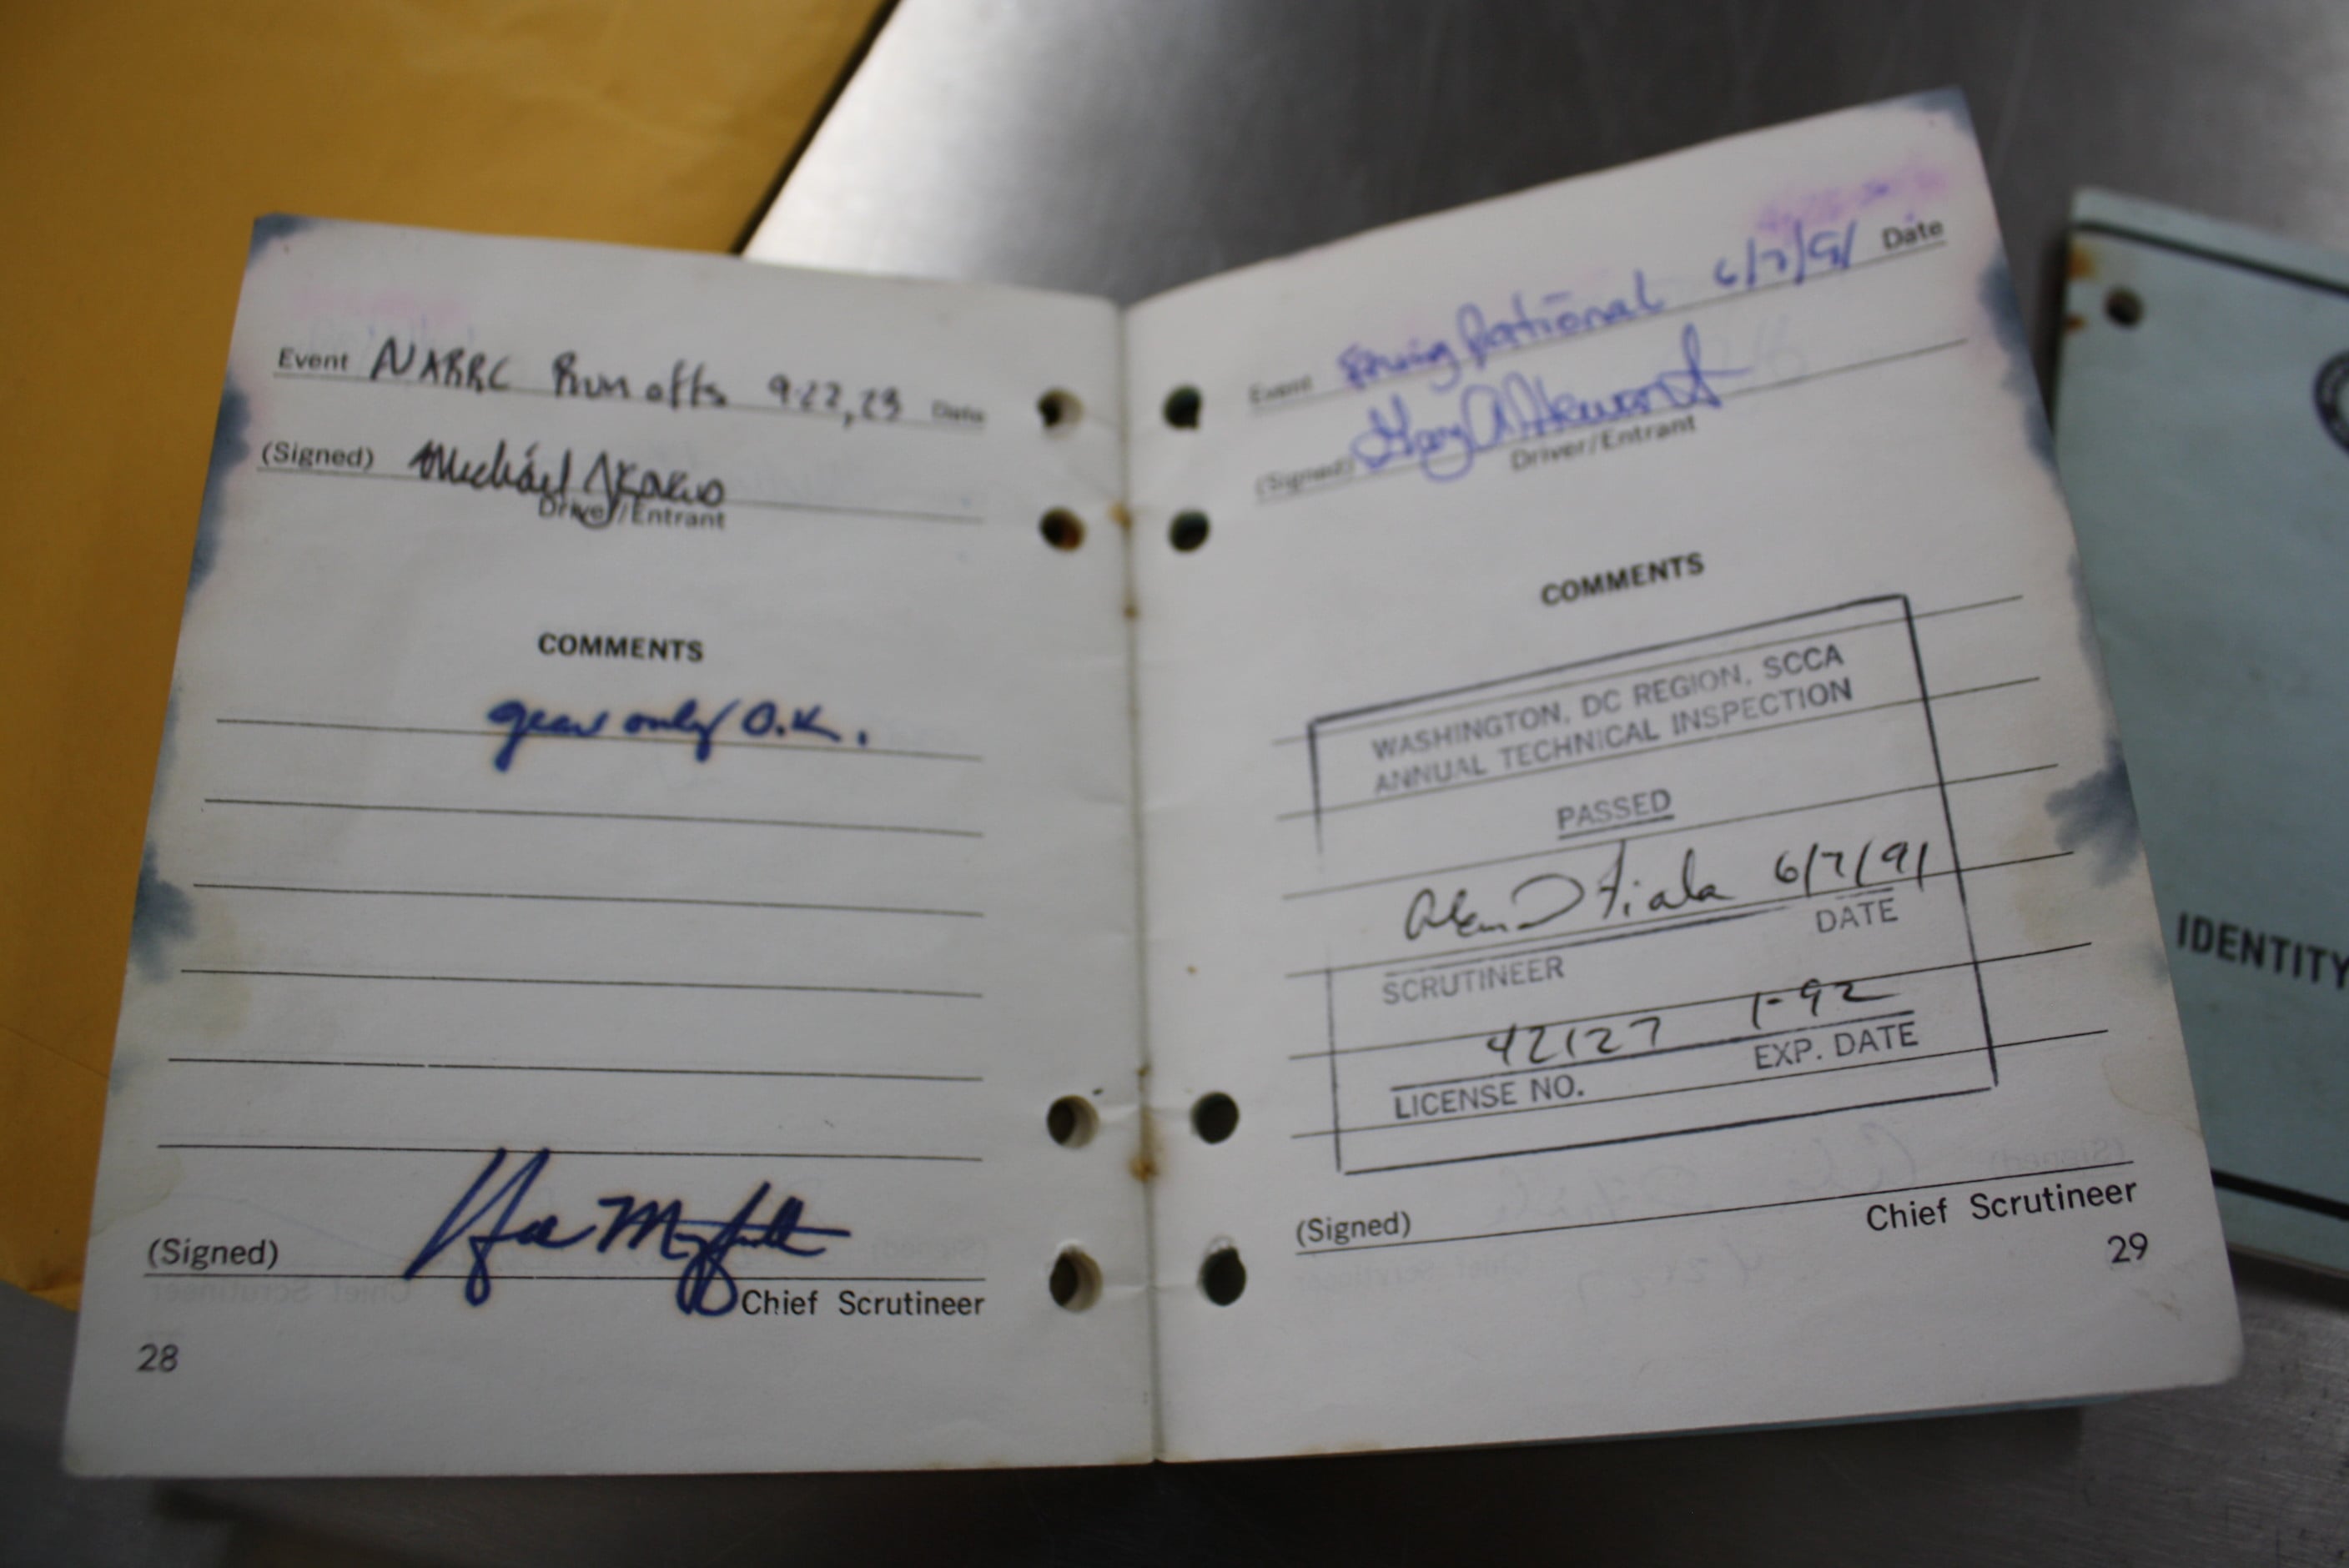 Event NARRC Runoffs 9-22,23 Date
(Signed) Michael
Driver/Entrant
COMMENTS
gear only O.K.
(Signed)
Chief Scrutineer
28
Event Spring National 6/7/91 Date
(Signed) Gary
Driver/Entrant
COMMENTS
WASHINGTON, DC REGION, SCCA
ANNUAL TECHNICAL INSPECTION
PASSED
Fiala 6/7/91
SCRUTINEER DATE
42127 1-92
LICENSE NO. EXP. DATE
(Signed)
Chief Scrutineer
29
IDENTITY